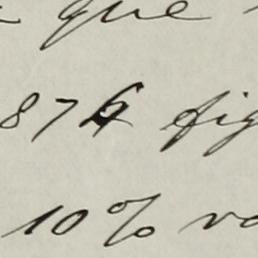 que
87 fig
10% va